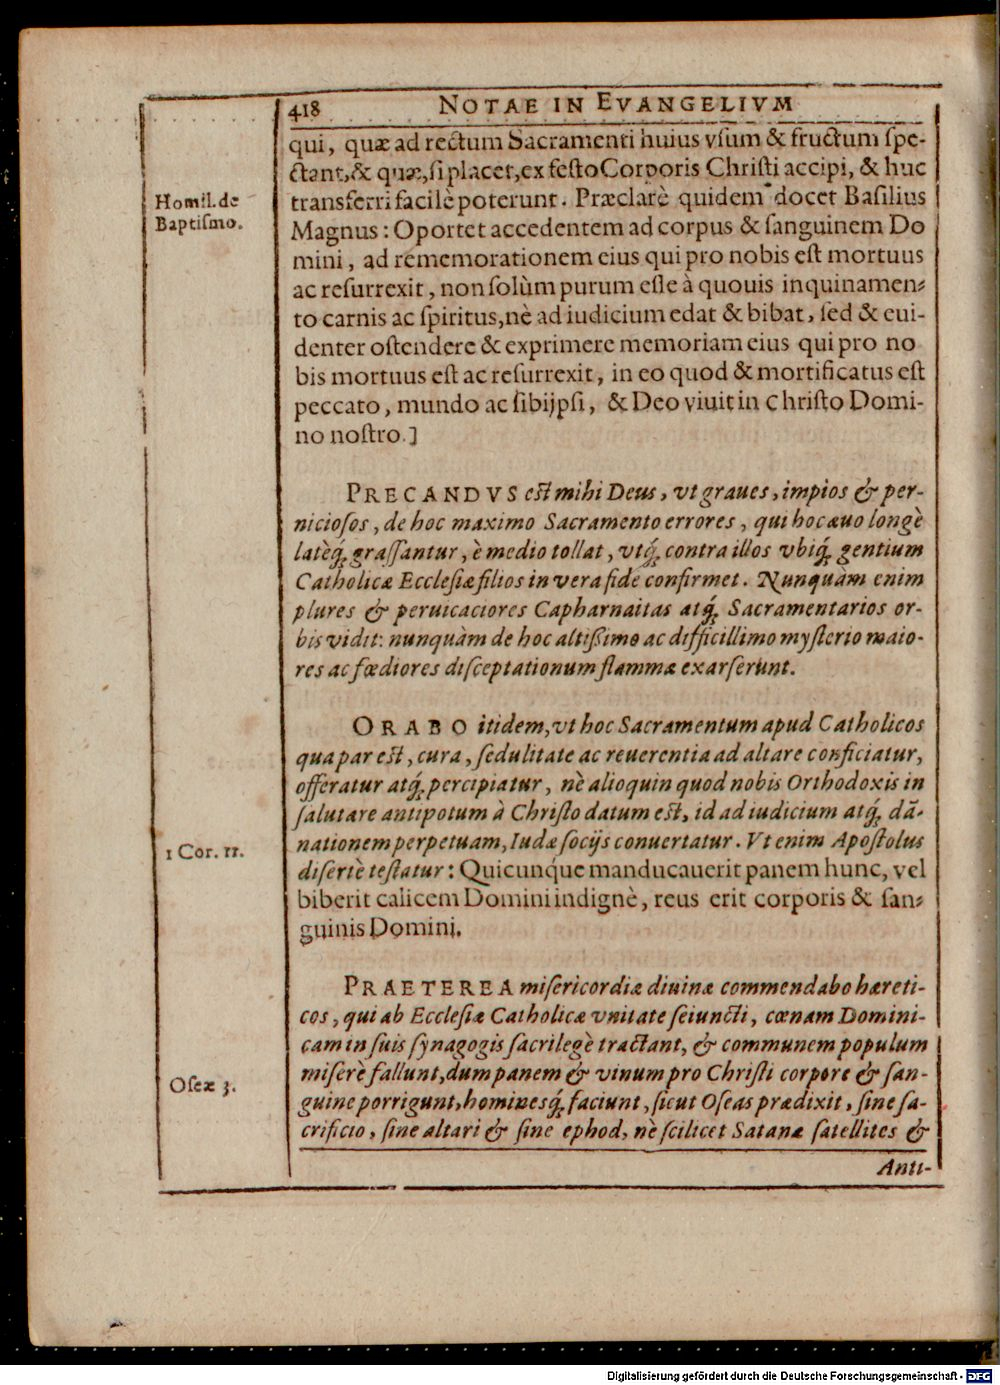 418 NOTAE IN EVANGELIVM
qui, quæ ad rectum Sacramenti huius vſum & fructum ſpe-
ctant, & quæ, ſi placet, ex feſto Corporis Chriſti accipi, & huc
transferri facilè poterunt. Præclarè quidem docet Baſilius
Homil. de
Baptiſmo.
Magnus: Oportet accedentem ad corpus & ſanguinem Do
mini, ad rememorationem eius qui pro nobis eſt mortuus
ac reſurrexit, non ſolùm purum eſſe à quouis inquinamen-
to carnis ac ſpiritus, nè ad iudicium edat & bibat, ſed & eui-
denter oſtendere & exprimere memoriam eius qui pro no
bis mortuus eſt ac reſurrexit, in eo quod & mortificatus eſt
peccato, mundo ac ſibijpſi, & Deo viuit in Chriſto Domi-
no noſtro.]
PRECANDVS eſt mihi Deus, vt graues, impios & per-
nicioſos, de hoc maximo Sacramento errores, qui hoc æuo longè
latèq́; graſſantur, è medio tollat, vtq́; contra illos vbiq́; gentium
Catholicæ Eccleſiæ filios in vera fide confirmet. Nunquàm enim
plures & peruicaciores Capharnaitas atq́; Sacramentarios or-
bis vidit: nunquàm de hoc altißimo ac difficillimo myſterio maio-
res ac fœdiores diſceptationum flammæ exarſerunt.
ORABO itidem, vt hoc Sacramentum apud Catholicos
qua par eſt, cura, ſedulitate ac reuerentia ad altare conficiatur,
offeratur atq́; percipiatur, nè alioquin quod nobis Orthodoxis in
ſalutare antipotum à Chriſto datum eſt, id ad iudicium atq́; dã-
nationem perpetuam, Iudæ ſocijs conuertatur. Vt enim Apoſtolus
1 Cor. 11.
diſertè teſtatur: Quicunque manducauerit panem hunc, vel
biberit calicem Domini indignè, reus erit corporis & ſan-
guinis Domini.
PRAETEREA miſericordiæ diuinæ commendabo hæreti-
cos, qui ab Eccleſiæ Catholicæ vnitate ſeiuncti, cœnam Domini-
cam in ſuis ſynagogis ſacrilegè tractant, & communem populum
miſerè fallunt, dum panem & vinum pro Chriſti corpore & ſan-
Oſeæ 3.
guine porrigunt, homineſq́; faciunt, ſicut Oſeas prædixit, ſine ſa-
crificio, ſine altari & ſine ephod, nè ſcilicet Satanæ ſatellites &
Anti-
Digitalisierung gefördert durch die Deutsche Forschungsgemeinschaft - DFG